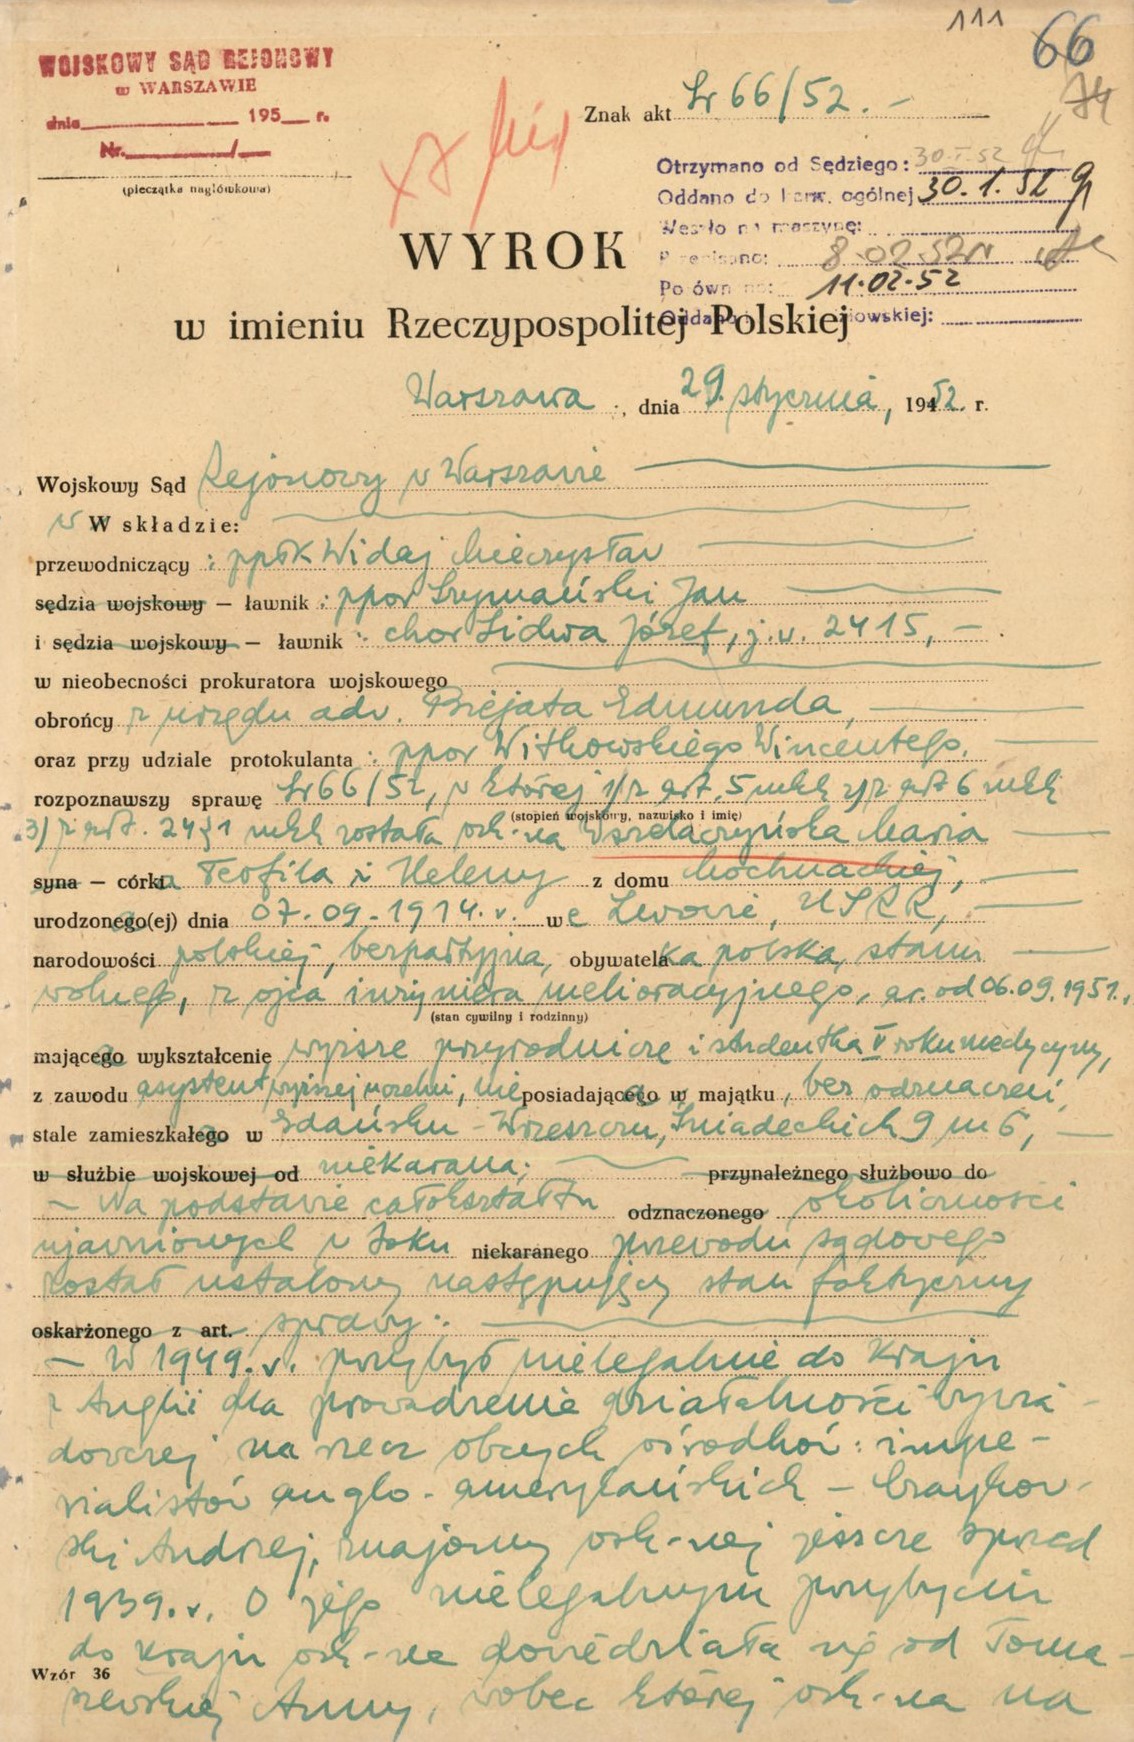 111
66
74
WOJSKOWY SĄD REJONOWY
w WARSZAWIE
dnia 195 r.
Nr. /
(pieczątka nagłówkowa)
Znak akt Sr 66/52. –
Otrzymano od Sędziego: 30.I.52
Oddano do kanc. ogólnej 30.1.52
Weszło na maszynę:
Przepisano: 8.02.52
Porównano: 11.02.52
WYROK
w imieniu Rzeczypospolitej Polskiej
Warszawa, dnia 29. stycznia, 1952. r.
Wojskowy Sąd Rejonowy w Warszawie
w W składzie:
przewodniczący: ppłk Widaj Mieczysław
sędzia wojskowy – ławnik: ppor Szymański Jan
i sędzia wojskowy – ławnik: chor Lidwa Józef, j.w. 2415, –
w nieobecności prokuratora wojskowego
obrońcy z urzędu adv. Biejata Edmunda,
oraz przy udziale protokulanta: ppor Witkowskiego Wincentego.
rozpoznawszy sprawę Sr 66/52, w której 1/ z art. 5 mkk 2/ z art 6 mkk
(stopień wojskowy, nazwisko i imię)
3/ z art. 24§1 mkk została osk-na Wszelaczyńska Maria
syna – córka Teofila i Heleny z domu Mochnackiej,
urodzonego(ej) dnia 07-09-1914.r. we Lwowie, USRR,
narodowości polskiej, bezpartyjna, obywatelka polska, stanu
wolnego, z ojca inżyniera melioracyjnego, ar. od 06.09.1951.,
(stan cywilny i rodzinny)
mającego wykształcenie wyższe przyrodnicze i studentka V roku medycyny,
z zawodu asystent wyższej uczelni, nieposiadającego w majątku, bez odznaczeń,
stale zamieszkałego w Gdańsku-Wrzeszczu, Śniadeckich 9 m 6,
w służbie wojskowej od niekarana; przynależnego służbowo do
– Na podstawie całokształtu odznaczonego okoliczności
ujawnionych w toku niekaranego przewodu sądowego
został ustalony następujący stan faktyczny
oskarżonego z art. sprawy:
– W 1949.r. przybył nielegalnie do Kraju
z Anglii dla prowadzenia działalności wywia-
dowczej na rzecz obcych ośrodków: impe-
rialistów anglo-amerykańskich – Czaykow-
ski Andrzej, znajomy osk-nej jeszcze sprzed
1939.r. O jego nielegalnym przybyciu
do kraju osk-na dowiedziała się od Toma-
Wzór 36
szewskiej Anny, wobec której osk-na na